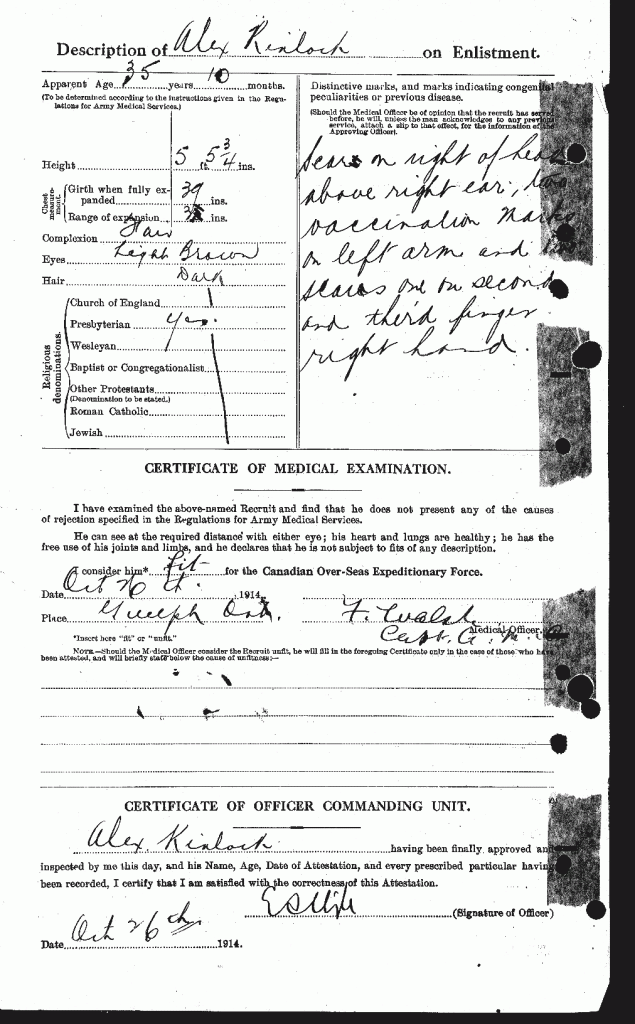 Description of Alex Kinloch on Enlistment.
Apparent Age 35 years 10 months.
(To be determined according to the instructions given in the Regulations for Army Medical Services.)
Height 5 ft. 5 3/4 ins.
Chest measurement.
Girth when fully expanded 39 ins.
Range of expansion ins.
Complexion Fair
Eyes Light Brown
Hair Dark
Religious denominations.
Church of England
Presbyterian Yes.
Wesleyan
Baptist or Congregationalist
Other Protestants
(Denomination to be stated.)
Roman Catholic
Jewish
Distinctive marks, and marks indicating congenital
peculiarities or previous disease.
(Should the Medical Officer be of opinion that the recruit has served
before, he will, unless the man acknowledges to any previous
service, attach a slip to that effect, for the information of the
Approving Officer).
Scars on right of head
above right ear, two
vaccination marks
on left arm and two
scars one on second
and third finger
right hand.
CERTIFICATE OF MEDICAL EXAMINATION.
I have examined the above-named Recruit and find that he does not present any of the causes
of rejection specified in the Regulations for Army Medical Services.
He can see at the required distance with either eye; his heart and lungs are healthy; he has the
free use of his joints and limbs, and he declares that he is not subject to fits of any description.
I consider him* fit for the Canadian Over-Seas Expeditionary Force.
Date Oct 26 1914.
Place Guelph Ont. F. Walsh
Medical Officer.
Capt. A. M. C.
*Insert here "fit" or "unfit."
NOTE.—Should the Medical Officer consider the Recruit unfit, he will fill in the foregoing Certificate only in the case of those who have
been attested, and will briefly state below the cause of unfitness:—
CERTIFICATE OF OFFICER COMMANDING UNIT.
Alex Kinloch having been finally approved and
inspected by me this day, and his Name, Age, Date of Attestation, and every prescribed particular having
been recorded, I certify that I am satisfied with the correctness of this Attestation.
(Signature of Officer)
Date Oct 26th 1914.